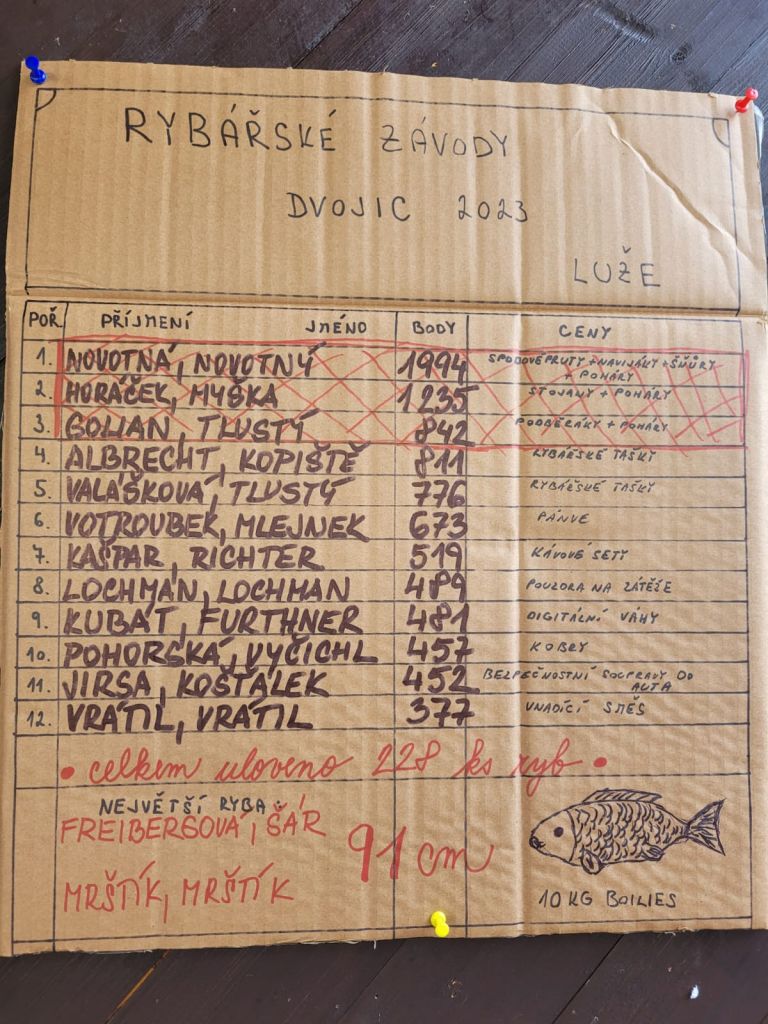 RYBÁŘSKÉ ZÁVODY
DVOJIC 2023
LUŽE
POŘ. PŘÍJMENÍ JMÉNO BODY CENY
1. NOVOTNÁ, NOVOTNÝ 1994 SPODOVÉ PRUTY + NAVIJÁKY + ŠŇŮRY
+ POHÁRY
2. HORÁČEK, MYŠKA 1235 STOJANY + POHÁRY
3. GOLIAN, TLUSTÝ 842 PODBĚRÁKY + POHÁRY
4. ALBRECHT, KOPIŠTĚ 811 RYBÁŘSKÉ TAŠKY
5. VALÁŠKOVÁ, TLUSTÝ 776 RYBÁŘSKÉ TAŠKY
6. VOTROUBEK, MLEJNEK 673 PÁNVE
7. KAŠPAR, RICHTER 519 KÁVOVÉ SETY
8. LOCHMAN, LOCHMAN 489 POUZDRA NA ZÁTĚŽE
9. KUBÁT, FURTHNER 481 DIGITÁLNÍ VÁHY
10. POHORSKÁ, VYČICHL 457 KOBRY
11. JIRSA, KOŠŤÁLEK 452 BEZPEČNOSTNÍ SOUPRAVY DO
AUTA
12. VRÁTIL, VRÁTIL 377 VNADÍCÍ SMĚS
• celkem uloveno 228 ks ryb •
NEJVĚTŠÍ RYBA:
FREIBERGOVÁ, ŠÁR
91 cm
MRŠTÍK, MRŠTÍK
10 KG BOILIES